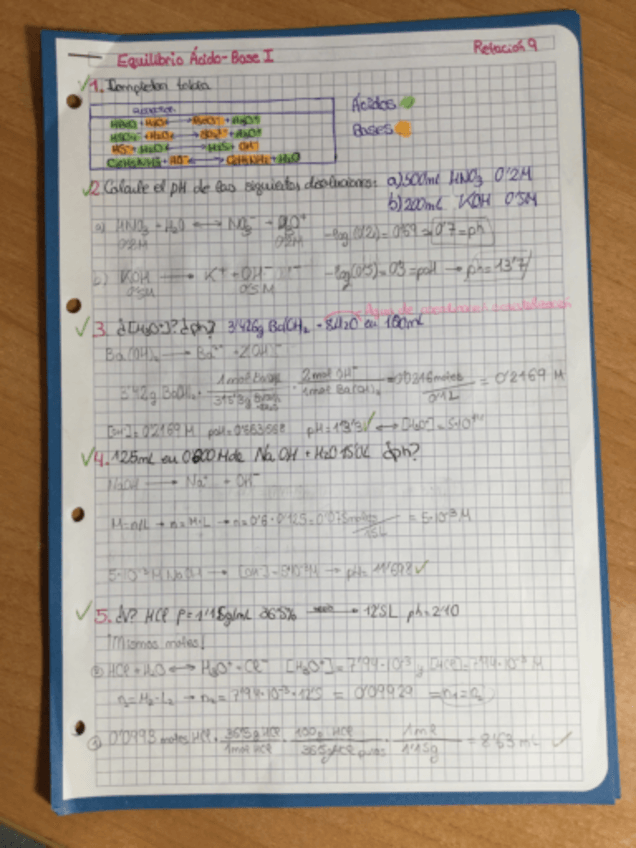 Equilibrio Ácido-Base I Relación 9
1. Completar tabla
Ácidos
Bases
2. Calcule el pH de las siguientes disoluciones: a) 500mL HNO3 0'2M
b) 200mL KOH 0'5M
a) HNO3 + H2O ⟷ NO3- + H3O+ -log(0'2) = 0'69 = 0'7 = ph
0'2M 0'2M
KOH → K+ + OH- -log(0'5) = 0'3 = poH → ph = 13'7
0'5M 0'5M
3. ¿[H3O+]? ¿ph? 3'426g Ba(OH)2 · 8H2O en 100mL
Ba(OH)2 → Ba2+ + 2OH-
3'42g Ba(OH)2 · 1mol / 315'3g · 2mol OH- / 1mol Ba(OH)2 = 0'0216 moles / 0'1L = 0'2169 M
[OH-] = 0'2169 M poH = 0'663568 pH = 13'3 ⟷ [H3O+] =
4. 125mL en 0'600M de NaOH + H2O 15'0L ¿ph?
NaOH → Na+ + OH-
M = n/L → n = M·L → n = 0'6 · 0'125 = 0'075moles / 15L = 5·10-3 M
5·10-3 M NaOH → [OH-] = 5·10-3M → pH = 11'698
5. ¿V? HCl ρ = 1'15g/mL 36'5% → 12'5L ph = 2'10
¡Mismos moles!
② HCl + H2O ⟷ H3O+ + Cl- [H3O+] = 7'94·10-3 [HCl] = 7'94·10-3 M
n2 = M2·L2 → n2 = 7'94·10-3 · 12'5 = 0'09929 = n1 = n2
① 0'0993 moles HCl · 36'5g HCl / 1mol HCl · 100g HCl / 36'5g HCl puros · 1mL / 1'15g = 8'63 mL